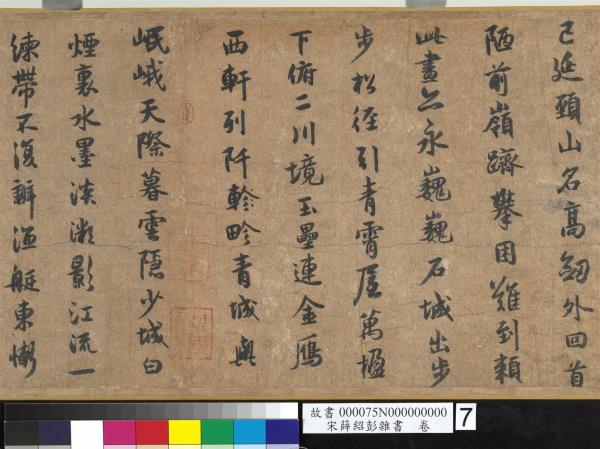 已延頸山名高劒外回首
陋前嶺躋攀困難到賴
此畫之永巍巍石城出步
步松徑引青霄屋萬楹
下俯二川境玉壘連金鴈
西軒列阡軫畛青城與
岷峨天際暮雲隱少城白
煙裏水墨淡漵影江流一
練帶不復辨漁艇東櫩
故書 000075N000000000
宋薛紹彭雜書 卷
7